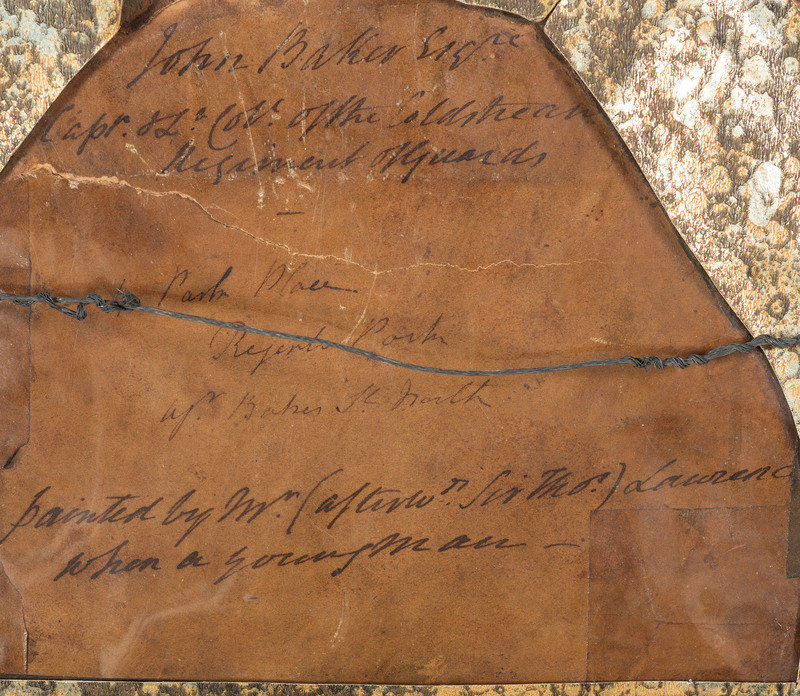 John Baker Esqre
Capt. & Lt. Col. of the Coldstream
Regiment of Guards
Park Place
Regents Park
Baker St. North
painted by Mr. (afterwds. Sir Thos.) Lawrenc
when a young man —